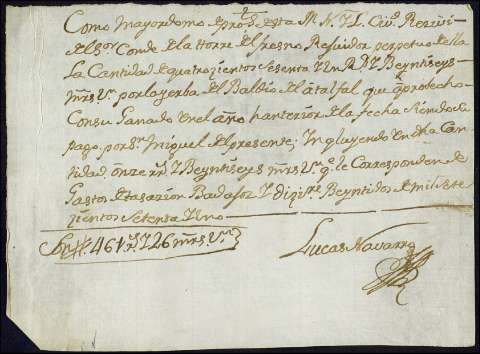 Como Mayordomo de propos de esta M. N. Y L. Ciud. Reziui
del Sor Conde de la torre del fresno Rejidor perpetuo de ella
La Cantidad de quatrozientos Sesenta Y Un Rs. Y Beyntiseys
mrs. Vn. por la yerba del Baldio de la talfal que aprobecho
Con su Ganado en el año hanterior de la fecha
pago, por Sn. Miguel del presente; Yncluyendo en dha Can
tidad onze rs. Y Beyntiseys mrs. Vn. q. le Corresponden de
Gastos de tasazion Badajoz Y Beyntidos de mil Sete
zientos Setenta Y Uno
Son 461 rs. Y 26 mrs. Vn.
Lucas Navarro